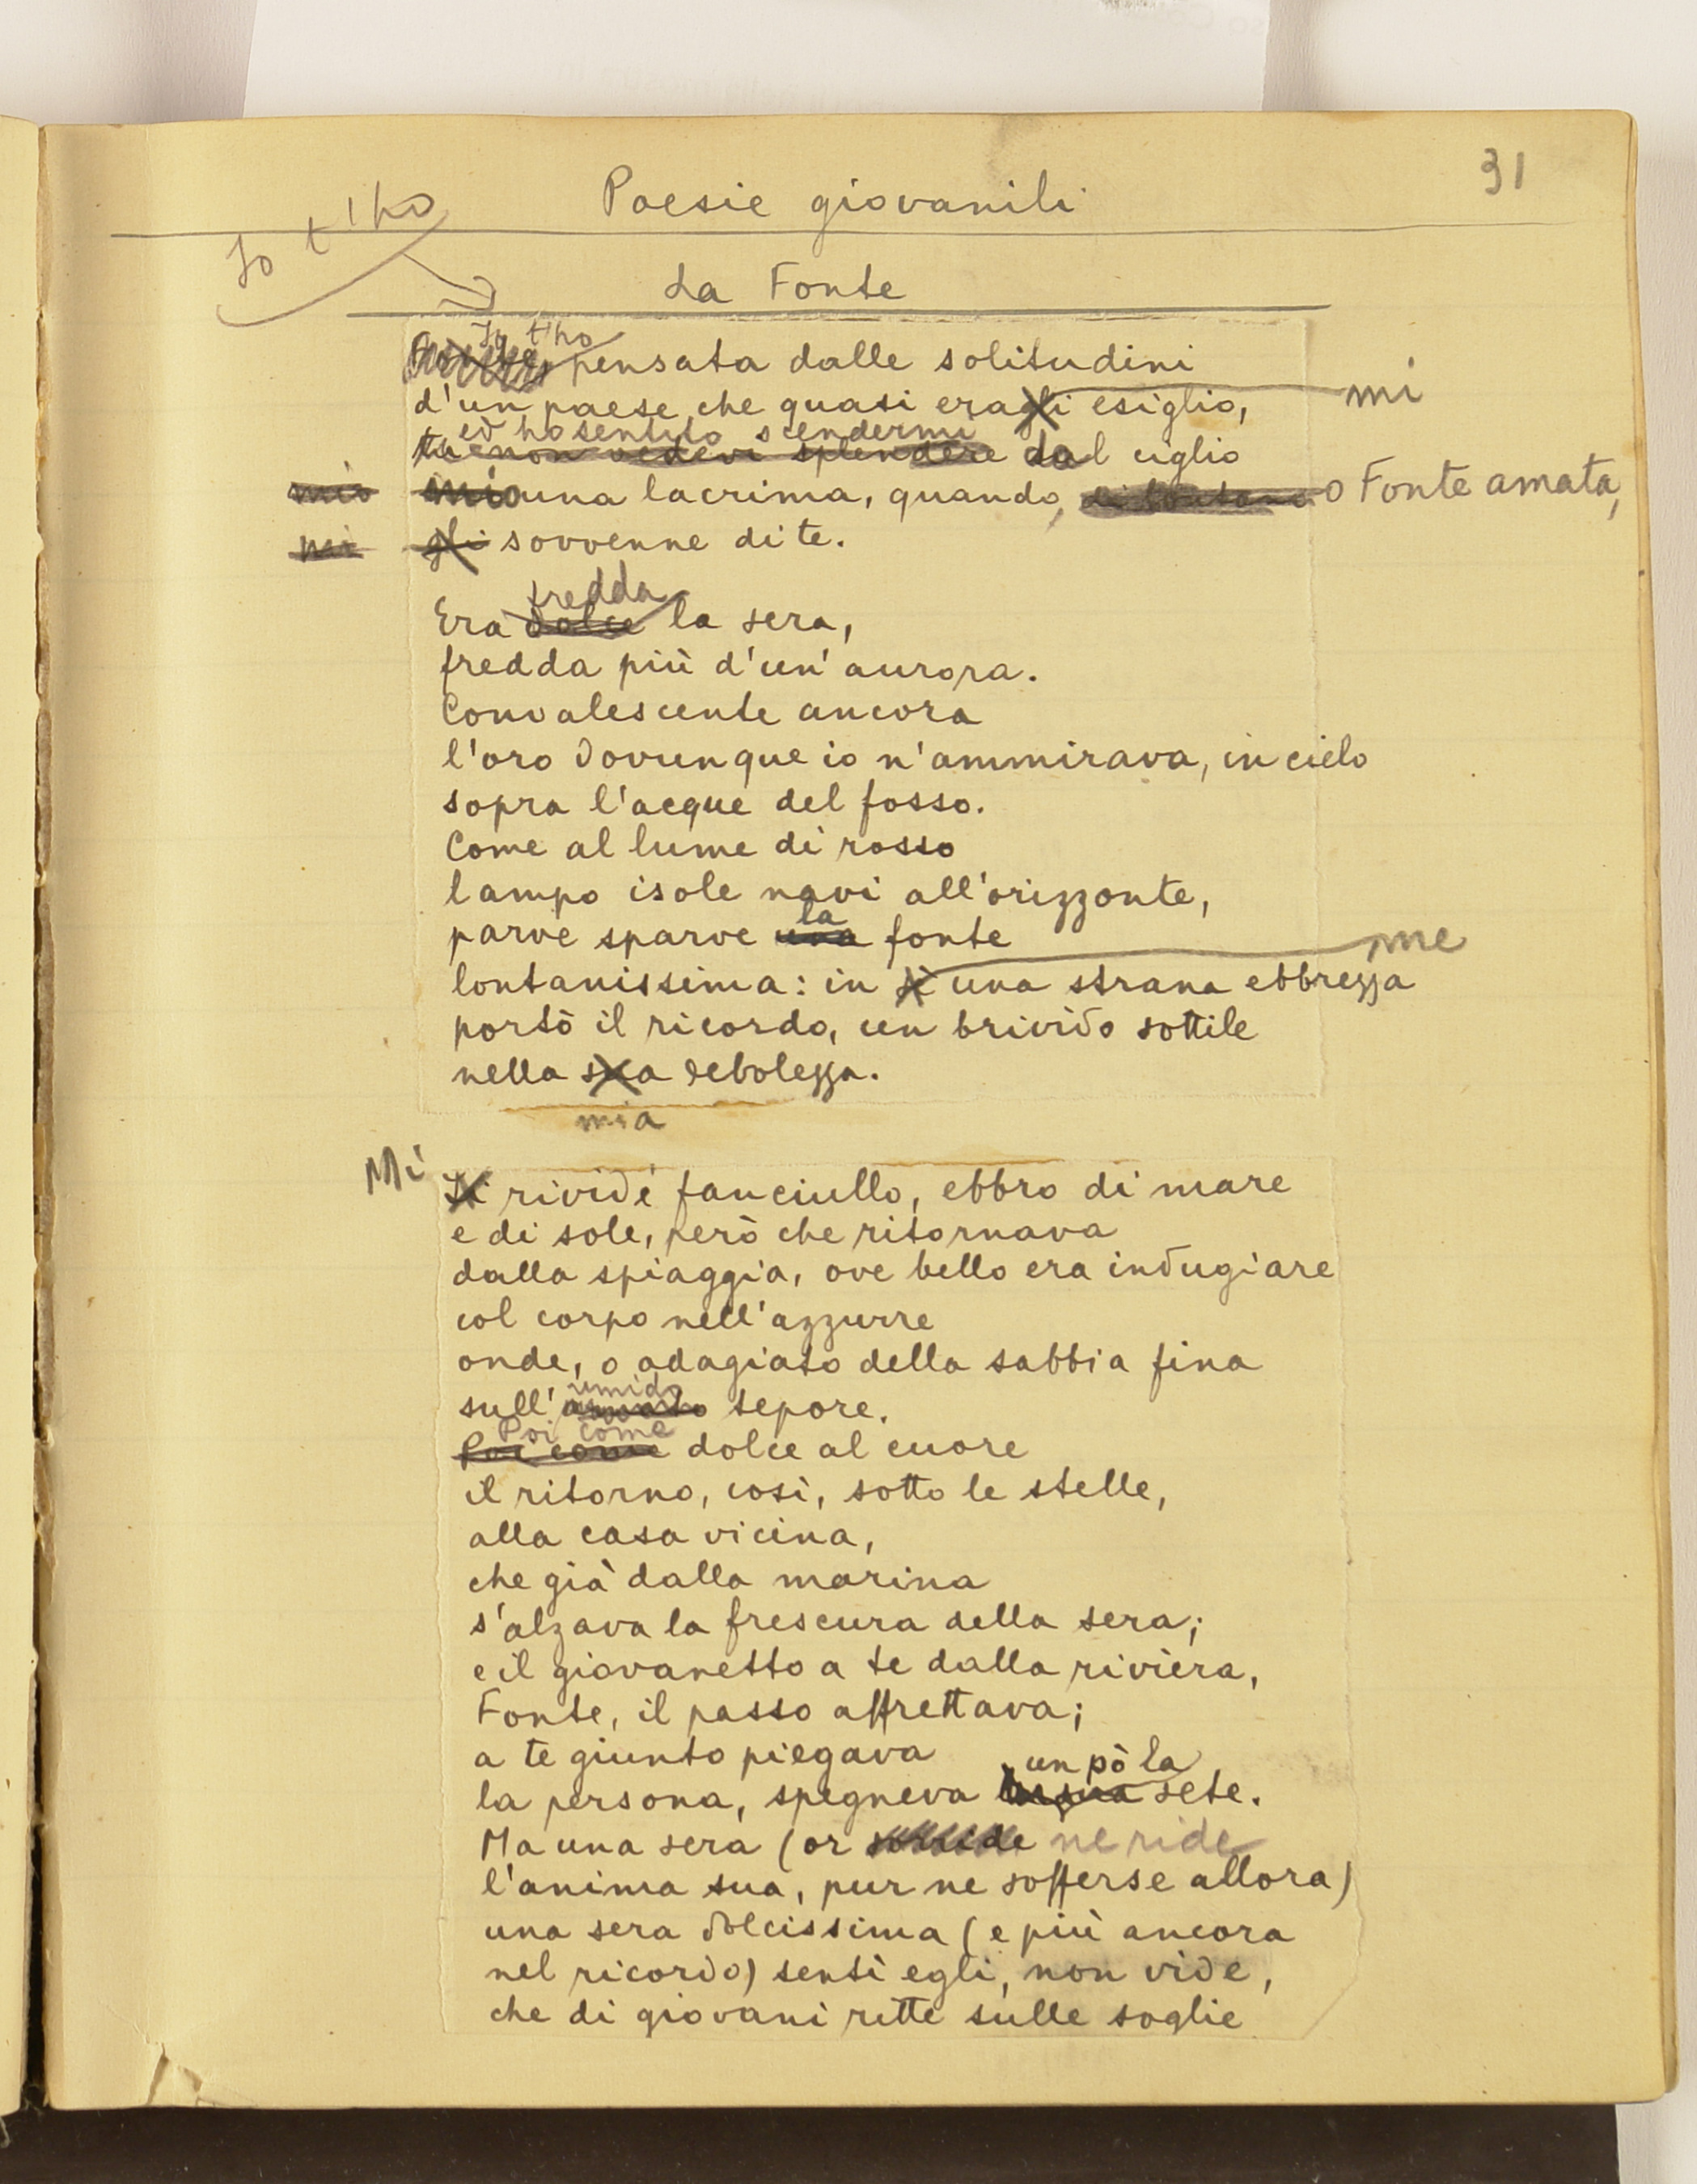 31
Poesie giovanili
Io t'ho
La Fonte
Io t'ho
pensata dalle solitudini
d'un paese che quasi eragli esiglio, mi
ed ho sentito scendermi
tu non vedevi splendere dal ciglio
mio mio una lacrima, quando, di lontano o Fonte amata,
mi gli sovvenne di te.
fredda
Era dolce la sera,
fredda più d'un'aurora.
Convalescente ancora
l'oro dovunque io n'ammirava, in cielo
sopra l'acque del fosso.
Come al lume di rosso
lampo isole navi all'orizzonte,
la
parve sparve una fonte
me
lontanissima: in sè una strana ebbrezza
portò il ricordo, un brivido sottile
nella sua debolezza.
mia
Mi
Si rivide fanciullo, ebbro di mare
e di sole, però che ritornava
dalla spiaggia, ove bello era indugiare
col corpo nell'azzurre
onde, o adagiato della sabbia fina
umido
sull' tepore.
Poi come
Poi come dolce al cuore
il ritorno, così, sotto le stelle,
alla casa vicina,
che già dalla marina
s'alzava la frescura della sera;
e il giovanetto a te dalla rivièra,
Fonte, il passo affrettava;
a te giunto piegava
un pò la
la persona, spegneva la sua sete.
Ma una sera (or sorride ne ride
l'anima sua, pur ne sofferse allora)
una sera dolcissima (e più ancora
nel ricordo) sentì egli, non vide,
che di giovani ritte sulle soglie